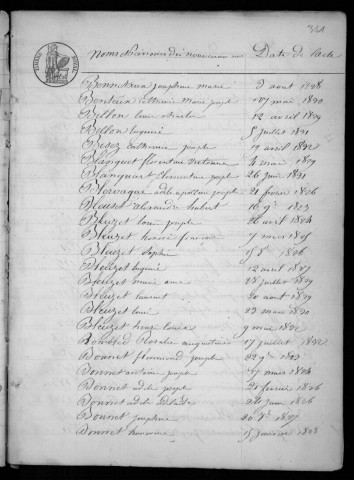 341
Noms et Prénoms des nouveaux nés Date de l'acte
Bonnetreux josephine marie 3 aout 1828
Bonteux catherine marie joseph 107 mai 1830
Billon louis 12 avril 1829
Billon eugenie 5 juillet 1831
Bisez catherine joseph 19 avril 1832
Blanquet florentine 4 mai 1829
Blanquart clementine joseph 26 juin 1831
joseph 21 fevrier 1826
Bleuset alexandre hubert 16 9bre 1823
Bleuzet louis joseph 20 avril 1824
Bleuzet honoré 7 mars 1825
Bleuzet sophie 15 8bre 1826
Bleuzet eugenie 12 avril 1827
Bleuzet marie anne 28 juillet 1829
Bleuzet laurent 20 aout 1829
Bleuzet louis 23 mars 1830
Bleuzet louise 9 mai 1832
rosalie augustine 17 juillet 1832
Bonnet floimond joseph 22 9bre 1823
Bonnet antoine joseph 17 mars 1824
Bonnet adele joseph 21 fevrier 1826
Bonnet adele 24 juin 1826
Bonnet josephine 20 1827
Bonnet honorine 15 janvier 1828